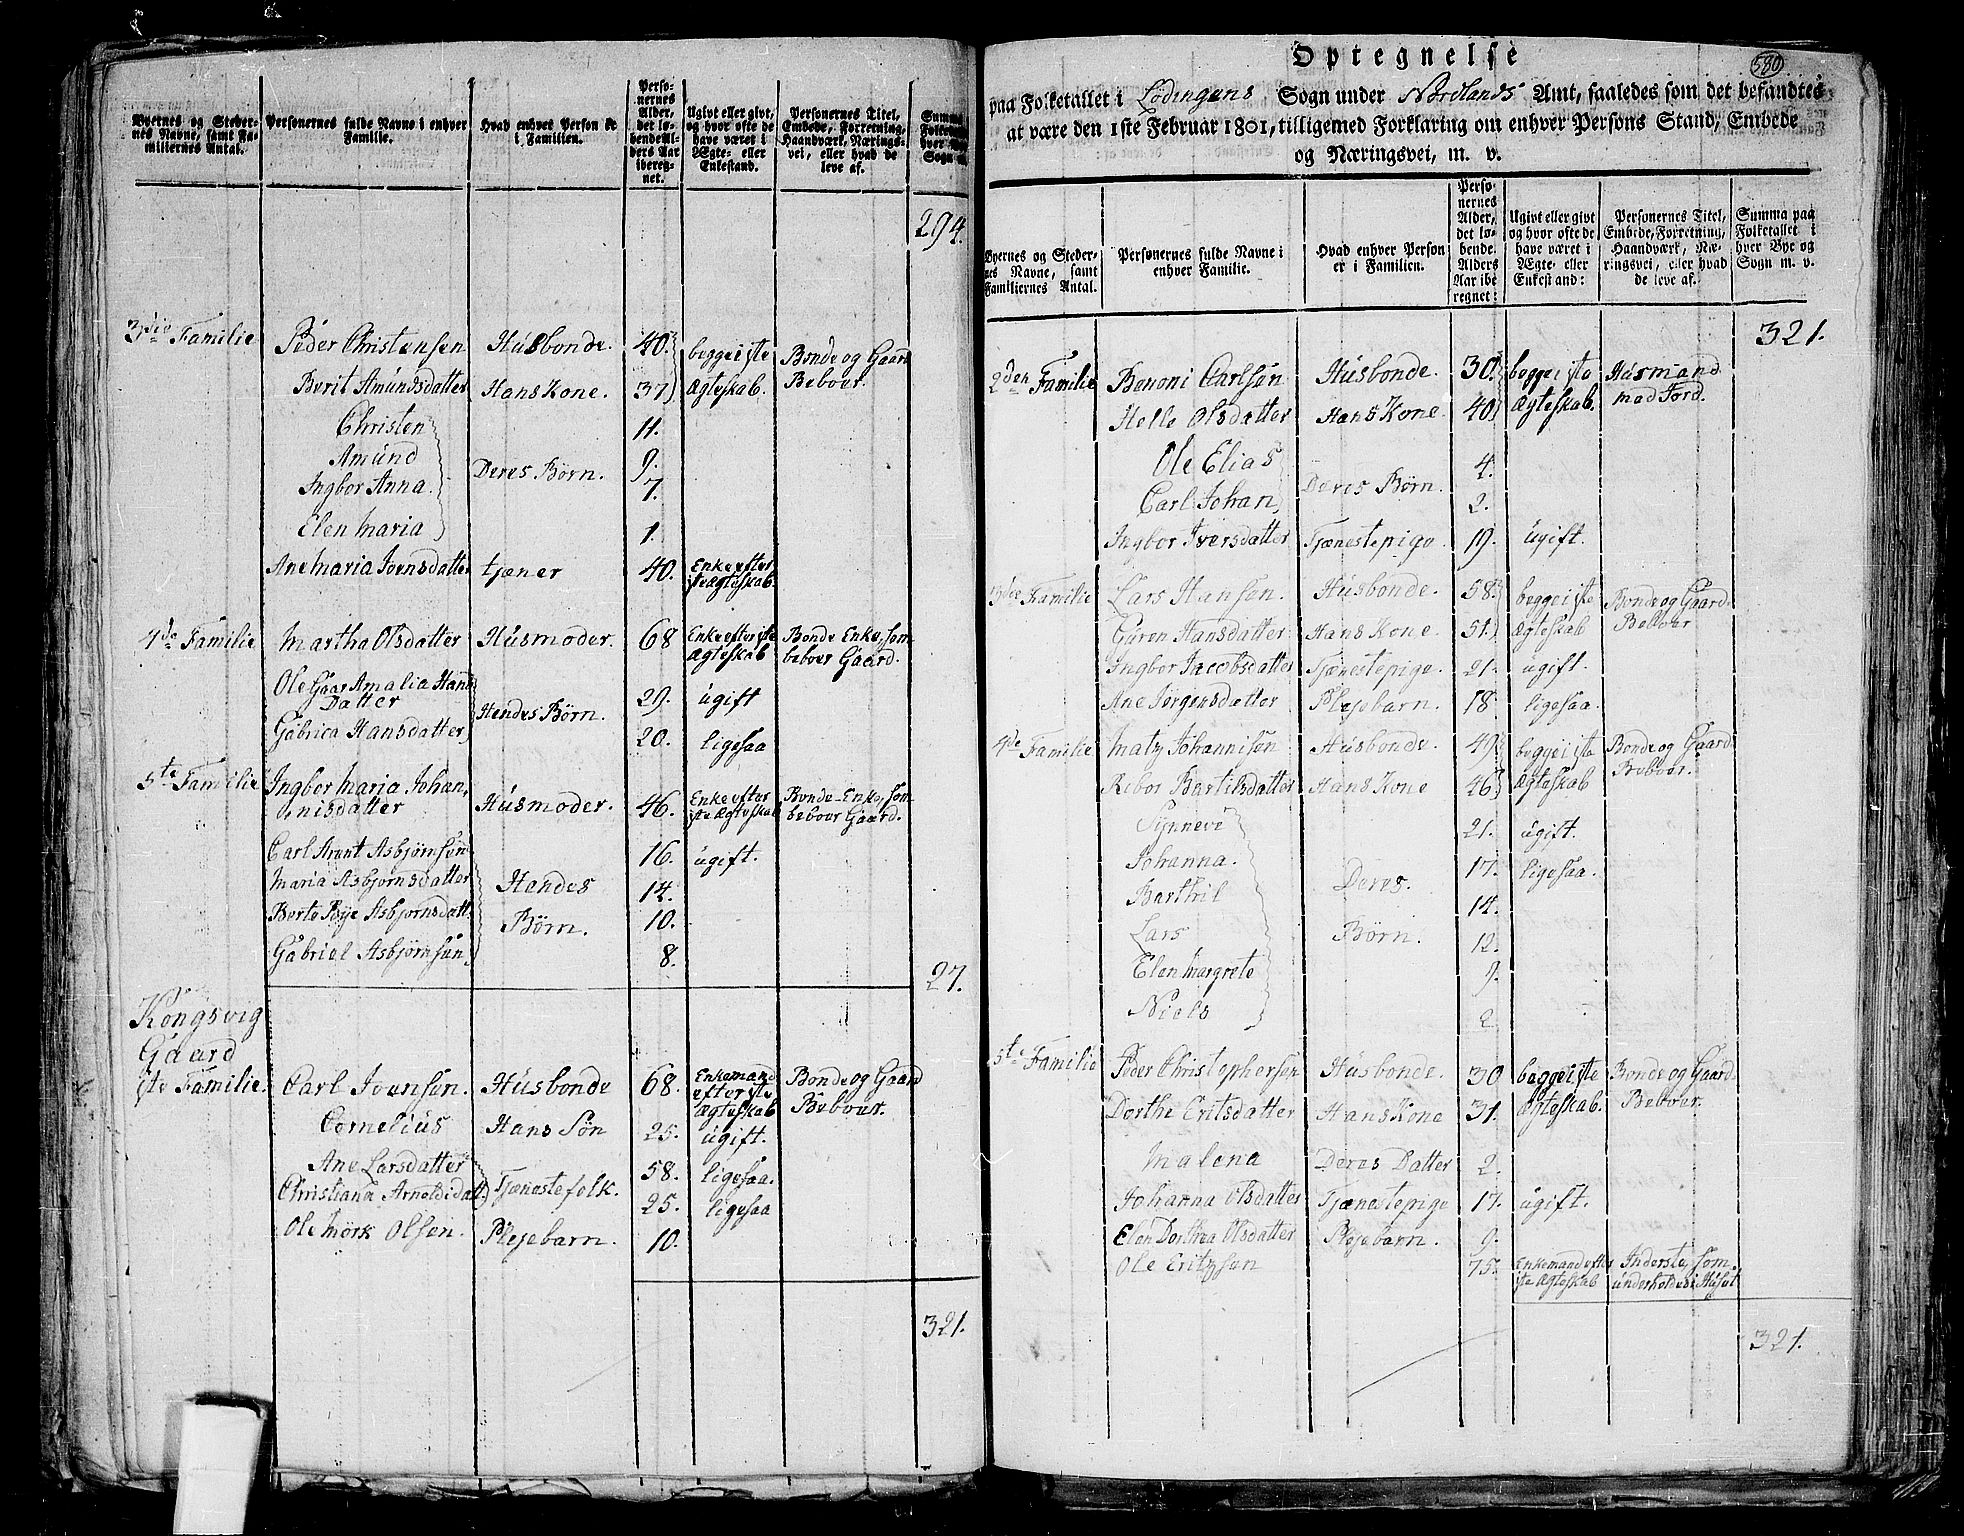 Byernes og Steder-
nes Navne, samt Fa-
miliernes Antal.
Personernes fulde Navne i enhver
Familie.
Hvad enhver Person er
i Familien.
Perso-
nernes
Alder,
det lø-
bende Al-
ders Aar
iberegnet.
Ugivt eller givt,
og hvor ofte de
have været i
Ægte- eller
Enkestand.
Personernes Titel,
Embede, Forretning,
Haandværk, Nærings-
vei, eller hvad de
leve af.
Summa
Folketallet
hver By
Sogn m.
294.
3die Familie Peder Christensen Husbonde. 40. begge i 1ste Ægteskab. Bonde og Gaard Beboer.
Berit Amundsdatter Hans Kone. 37
Christen 11.
Amund 9.
Deres Børn.
Ingbor Anna. 7.
Elen Maria 1.
Ane Maria Joensdatter tjener 40. Enke efter 1ste Ægteskab.
4de Familie Martha Olsdatter Husmoder. 68 Enke efter 1ste Ægteskab Bonde Enke, som beboer Gaard.
Ole Gaar Amalia Hans
Datter 29. ugift
Hendes Børn.
Gabrica Hansdatter 20. ligesaa
5te Familie Ingbor Maria Johan-
nisdatter Husmoder. 46. Enke efter 1ste Ægteskab Bonde-Enke, som beboer Gaard.
Carl Arent Asbjørnsen 16. ugift.
Maria Asbjørnsdatter Hendes 14.
Berte Boje Asbjørnsdatt. Børn. 10.
Gabriel Asbjørnsen 8.
27.
Kongsvig
Gaard
1ste Familie. Carl Joensen. Husbonde 68. Enkemand efter 1ste Ægteskab Bonde og Gaard Beboer.
Cornelius Hans Søn 25. ugift.
Ane Larsdatter 58. ligesaa.
Tjenestefolk.
Christiana Arnoldidatt 25. ligesaa
Ole Mørk Olsen. Plejebarn. 10.
321.
580
Optegnelse
paa Folketallet i Lödingens Sogn under Nordlands Amt, saaledes som det befandtes
at være den 1ste Februar 1801, tilligemed Forklaring om enhver Persons Stand, Embede
og Næringsvei, m. v.
Byernes og Steder-
nes Navne, samt
Familiernes Antal.
Personernes fulde Navne i
enhver Familie.
Hvad enhver Person
er i Familien.
Perso-
nernes
Alder,
det lø-
bende
Alders
Aar ibe
regnet:
Ugivt eller givt
og hvor ofte de
have været i
Ægte- eller
Enkestand:
Personernes Titel,
Embede, Forretning,
Haandværk, Næ-
ringsvei, eller hvad
de leve af.
Summa paa
Folketallet i
hver Bye og
Sogn m. v.
321.
2den Familie Benoni Carlsen Husbonde. 30. begge i 1ste Ægteskab. Husmand med Jord.
Helle Olsdatter Hans Kone. 40.
Ole Elias 4.
Deres Børn.
Carl Johan 2.
Ingbor Iversdatter Tjenestepige. 19. ugift.
3die Familie Lars Hansen. Husbonde. 58. begge i 1ste Ægteskab Bonde og Gaard Beboer
Guren Hansdatter Hans Kone. 51.
Ingbor Jacobsdatter Tjenestepige. 21. ugift.
Ane Jørgensdatter Plejebarn. 18. ligesaa.
4de Familie Matz Johannisen Husbonde. 49. begge i 1ste Ægteskab Bonde og Gaard Beboer.
Rebor Bartilsdatter Hans Kone 46.
Synneve 21. ugift.
Johanna. 17. ligesaa.
Deres.
Barthil 14.
Lars Børn. 12.
Elen Margrete 9.
Niels 2
5te Familie Peder Christophersen Husbonde. 30 begge i 1ste Ægteskab. Bonde og Gaard Beboer.
Dorthe Eritsdatter Hans Kone 31.
Malena Deres Datter 2.
Johanna Olsdatter Tjenestepige 17. ugift.
Elen Dorthea Olsdatter Plejebarn. 9.
Ole Eritzsen 75. Enkemand efter 1ste Ægteskab Inderste, som underholdes i Huset
321.